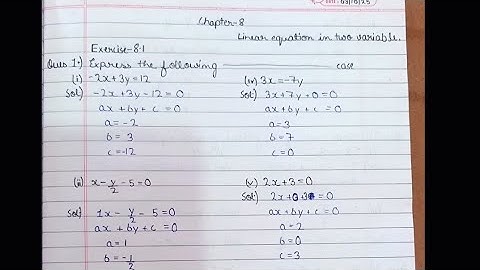 DATE: 03/10/25
Chapter-8
Linear equation in two variable.
Exercise-8.1
Ques 1.) Express the following ———— case
(i) -2x+3y=12
Sol) -2x+3y-12=0
ax+by+c=0
a=-2
b=3
c=-12
(ii) x-y/2-5=0
Sol) 1x-y/2-5=0
ax+by+c=0
a=1
b=-1/2
(iv) 3x=-7y
Sol) 3x+7y+0=0
ax+by+c=0
a=3
b=7
c=0
(v) 2x+3=0
Sol) 2x+0+3=0
ax+by+c=0
a=2
b=0
c=3